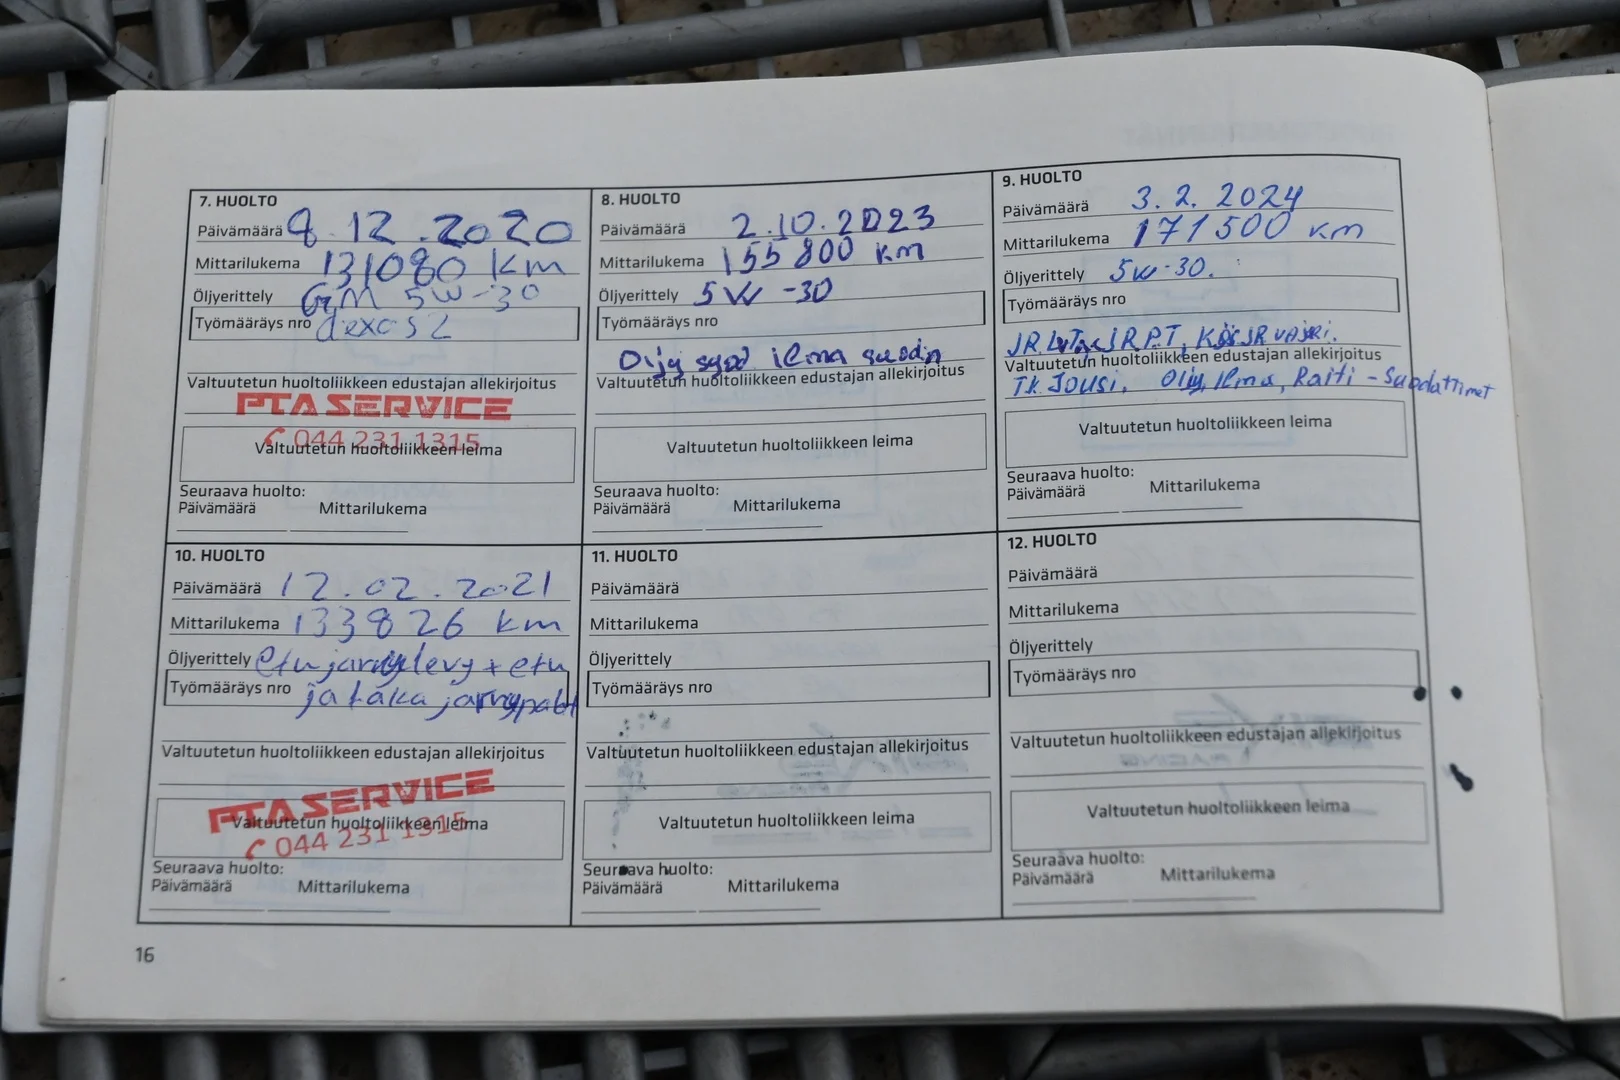 7. HUOLTO
Päivämäärä 8.12.2020
Mittarilukema 131080 km
Öljyerittely GM 5W-30
Työmääräys nro dexos 2
Valtuutetun huoltoliikkeen edustajan allekirjoitus
PTA SERVICE
044 231 1315
Valtuutetun huoltoliikkeen leima
Seuraava huolto:
Päivämäärä Mittarilukema
8. HUOLTO
Päivämäärä 2.10.2023
Mittarilukema 155 800 km
Öljyerittely 5W-30
Työmääräys nro
Öljy ilma
Valtuutetun huoltoliikkeen edustajan allekirjoitus
Valtuutetun huoltoliikkeen leima
Seuraava huolto:
Päivämäärä Mittarilukema
9. HUOLTO
Päivämäärä 3.2.2024
Mittarilukema 171 500 km
Öljyerittely 5W-30.
Työmääräys nro
Valtuutetun huoltoliikkeen edustajan allekirjoitus
TK. Jousi. Öljy, Ilma, Raiti-Suodattimet
Valtuutetun huoltoliikkeen leima
Seuraava huolto:
Päivämäärä Mittarilukema
10. HUOLTO
Päivämäärä 12.02.2021
Mittarilukema 133826 km
Öljyerittely etujarrulevy + etu
Työmääräys nro ja taka jarrupalat
Valtuutetun huoltoliikkeen edustajan allekirjoitus
PTA SERVICE
Valtuutetun huoltoliikkeen leima
044 231 1315
Seuraava huolto:
Päivämäärä Mittarilukema
11. HUOLTO
Päivämäärä
Mittarilukema
Öljyerittely
Työmääräys nro
Valtuutetun huoltoliikkeen edustajan allekirjoitus
Valtuutetun huoltoliikkeen leima
Seuraava huolto:
Päivämäärä Mittarilukema
12. HUOLTO
Päivämäärä
Mittarilukema
Öljyerittely
Työmääräys nro
Valtuutetun huoltoliikkeen edustajan allekirjoitus
Valtuutetun huoltoliikkeen leima
Seuraava huolto:
Päivämäärä Mittarilukema
16